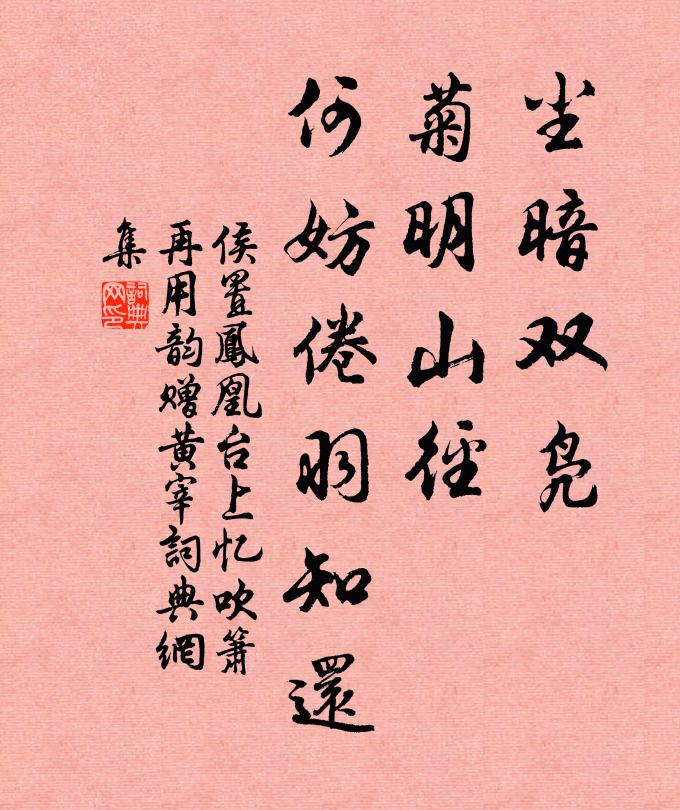 尘暗双凫
菊明山径
何妨倦羽知還
侯置鳳凰台上忆吹簫
再用韵赠黄宰詞典網
集
詞典
网印